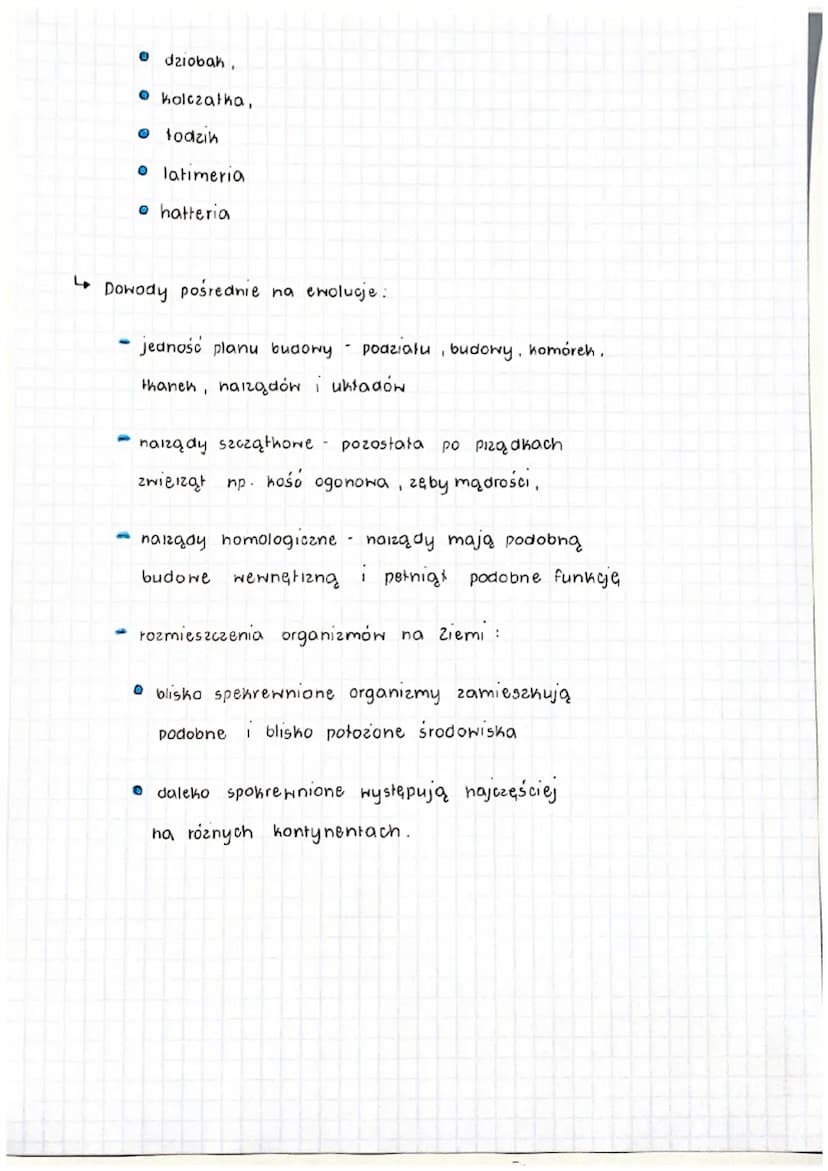 dziobak,
kolczatka,
łodzik
latimeria
hatteria
↳ Dowody pośrednie na ewolucje:
- jedność planu budowy - podziału, budowy, komórek,
tkanek, narządów i układów
- narządy szczątkowe - pozostała po prządkach
zwierząt np. kość ogonowa, zęby mądrości,
- narządy homologiczne - narządy mają podobną
budowe wewnętrzną i pełniąt podobne funkcję
- rozmieszczenia organizmów na Ziemi:
blisko spekrewnione organizmy zamieszkują
podobne i blisko położone środowiska
daleko spokrewnione występują najczęściej
na różnych kontynentach.